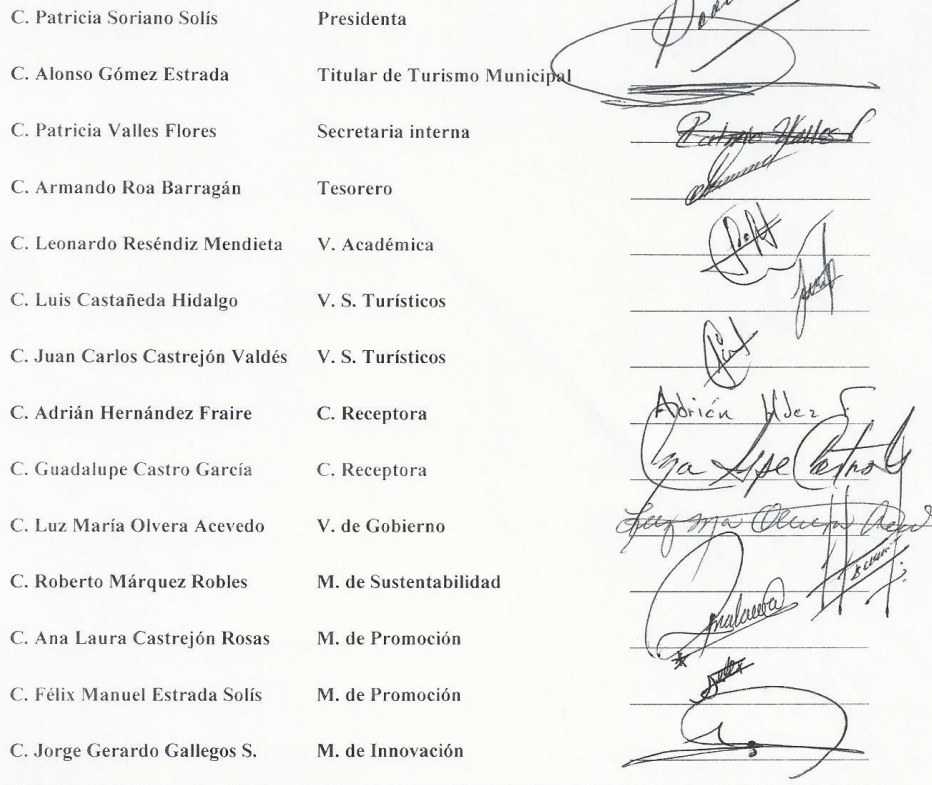 C. Patricia Soriano Solís Presidenta
C. Alonso Gómez Estrada Titular de Turismo Municipal
C. Patricia Valles Flores Secretaria interna Patricia Valles
C. Armando Roa Barragán Tesorero
C. Leonardo Reséndiz Mendieta V. Académica
C. Luis Castañeda Hidalgo V. S. Turísticos
C. Juan Carlos Castrejón Valdés V. S. Turísticos
C. Adrián Hernández Fraire C. Receptora Adrián Hdez F.
C. Guadalupe Castro García C. Receptora Ma Lpe Castro G
C. Luz María Olvera Acevedo V. de Gobierno Luz Ma Olvera
C. Roberto Márquez Robles M. de Sustentabilidad
C. Ana Laura Castrejón Rosas M. de Promoción
C. Félix Manuel Estrada Solís M. de Promoción
C. Jorge Gerardo Gallegos S. M. de Innovación